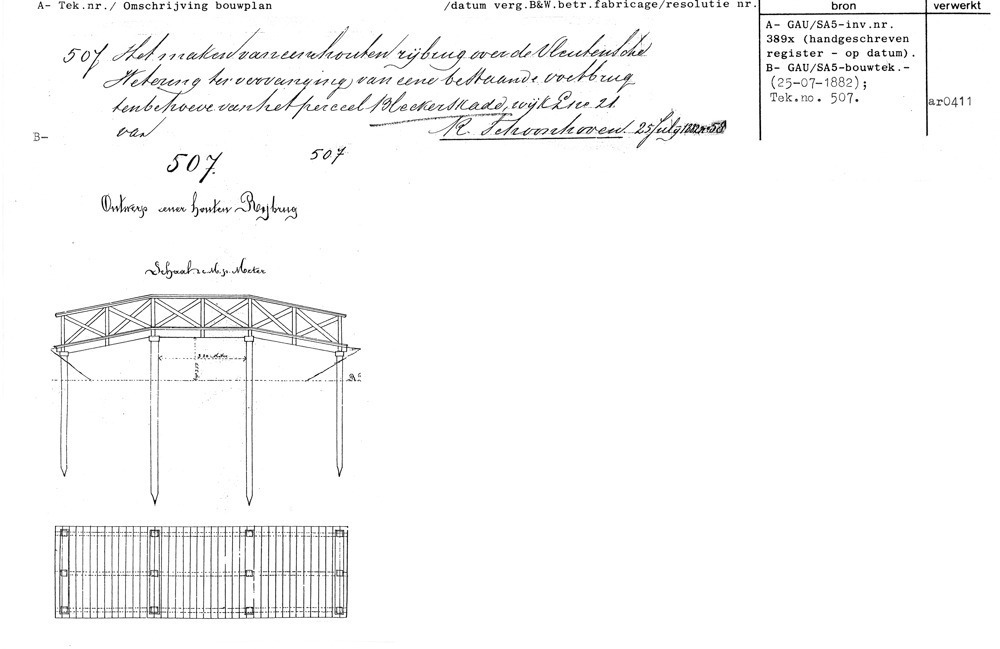 A- Tek.nr./ Omschrijving bouwplan /datum verg.B&W.betr.fabricage/resolutie nr. bron verwerkt
507 Het maken van een houten rijbrug over de Vleutensche
Wetering ter vervanging van eene bestaande voetbrug
ten behoeve van het perceel Bleekerskade, wijk L no. 21.
van K. Schoonhoven. 25 July 1882
B-
A- GAU/SA5-inv.nr.
389x (handgeschreven
register - op datum).
B- GAU/SA5-bouwtek.-
(25-07-1882);
Tek.no. 507.
ar0411
507.
507
Ontwerp eener houten Rijbrug
Schaal M. p. Meter